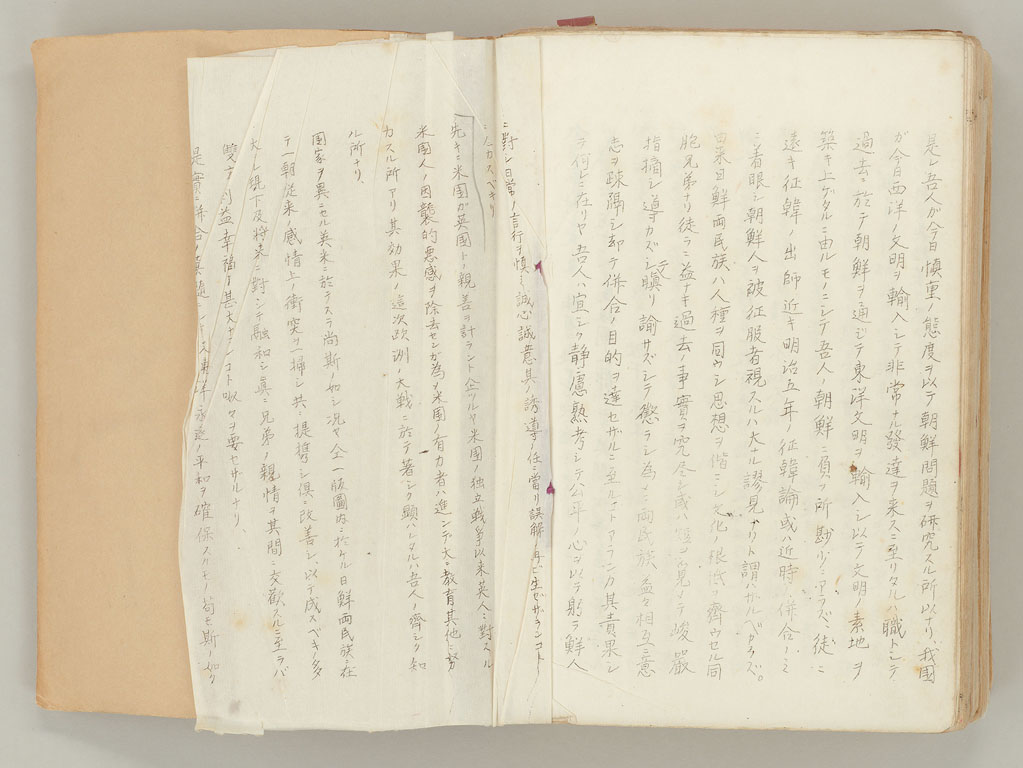 是レ吾人ガ今日慎重ノ態度ヲ以テ朝鮮問題ヲ研究スル所以ナリ、我国
ガ今日西洋ノ文明ヲ輸入シテ非常ナル發達ヲ来スニ至リタルハ職トシテ
過去ニ於テ朝鮮ヲ通ジテ東洋文明ヲ輸入シ以テ文明ノ素地ヲ
築キ上ゲタルニ由ルモノニシテ吾人ノ朝鮮ニ負フ所尠少ナラズ、徒ニ
遠キ征韓ノ出師近キ明治五年ノ征韓論或ハ近時ノ併合ノミ
ニ着眼シ朝鮮人ヲ被征服者視スルハ大ナル謬見ナリト謂ハザルベカラズ。
由来日鮮両民族ハ人種ヲ同ウシ思想ヲ偕ニシ文化ノ根低ヲ齊ウセル同
胞兄弟ナリ徒ラニ益ナキ過去ノ事實ヲ究尽シ或ハ 見 テ峻嚴
指摘シ導カズシテ瞋リ諭サズシテ懲ラシ為ニ両民族ノ益々相互ニ意
志ヲ疎隔シ却テ併合ノ目的ヲ達セザルニ至ルコトアランカ其責果シ
テ何レニ在リヤ吾人ハ宜シク静慮熟考シテ公平ノ心ヲ以テ躬ラ鮮人
ニ對シ日常ノ言行ヲ慎ミ誠心誠意其ノ誘導ノ任ニ當リ誤解ノ再ビ生ゼザランコトニ
カスベキナリ
先キニ米国ガ英国トノ親善ヲ計ラント企ツルヤ米国ノ独立戦争以来英人ニ對スル
米國人ノ因襲的悪感ヲ除去センガ為メ米国ノ有力者ハ進ンデ大ニ教育其他ニ努
力スル所アリ其効果ノ這次欧洲ノ大戦ニ於テ著シク顕ハレタルハ吾人ノ齊シク知
ル所ナリ、
国家ヲ異ニセル英米ニ於テスラ尚斯ノ如シ況ヤ仝一版圖内ニ於ケル日鮮両民族ニ在
テ一朝従来ノ感情上ノ衝突ヲ一掃シ共ニ提携シ倶ニ改善シ以テ成スベキノ多
大ナル現下及将来ニ對シテ融和シ真ニ兄弟ノ親情ヲ其間ニ交歡スルニ至ラバ
雙方ノ利益幸福ノ甚大ナランコト呶々ヲ要セザルナリ、
是實ニ併合ノ真髄ニシテ又東洋永遠ノ平和ヲ確保スベキモノ苟モ斯ノ如ク